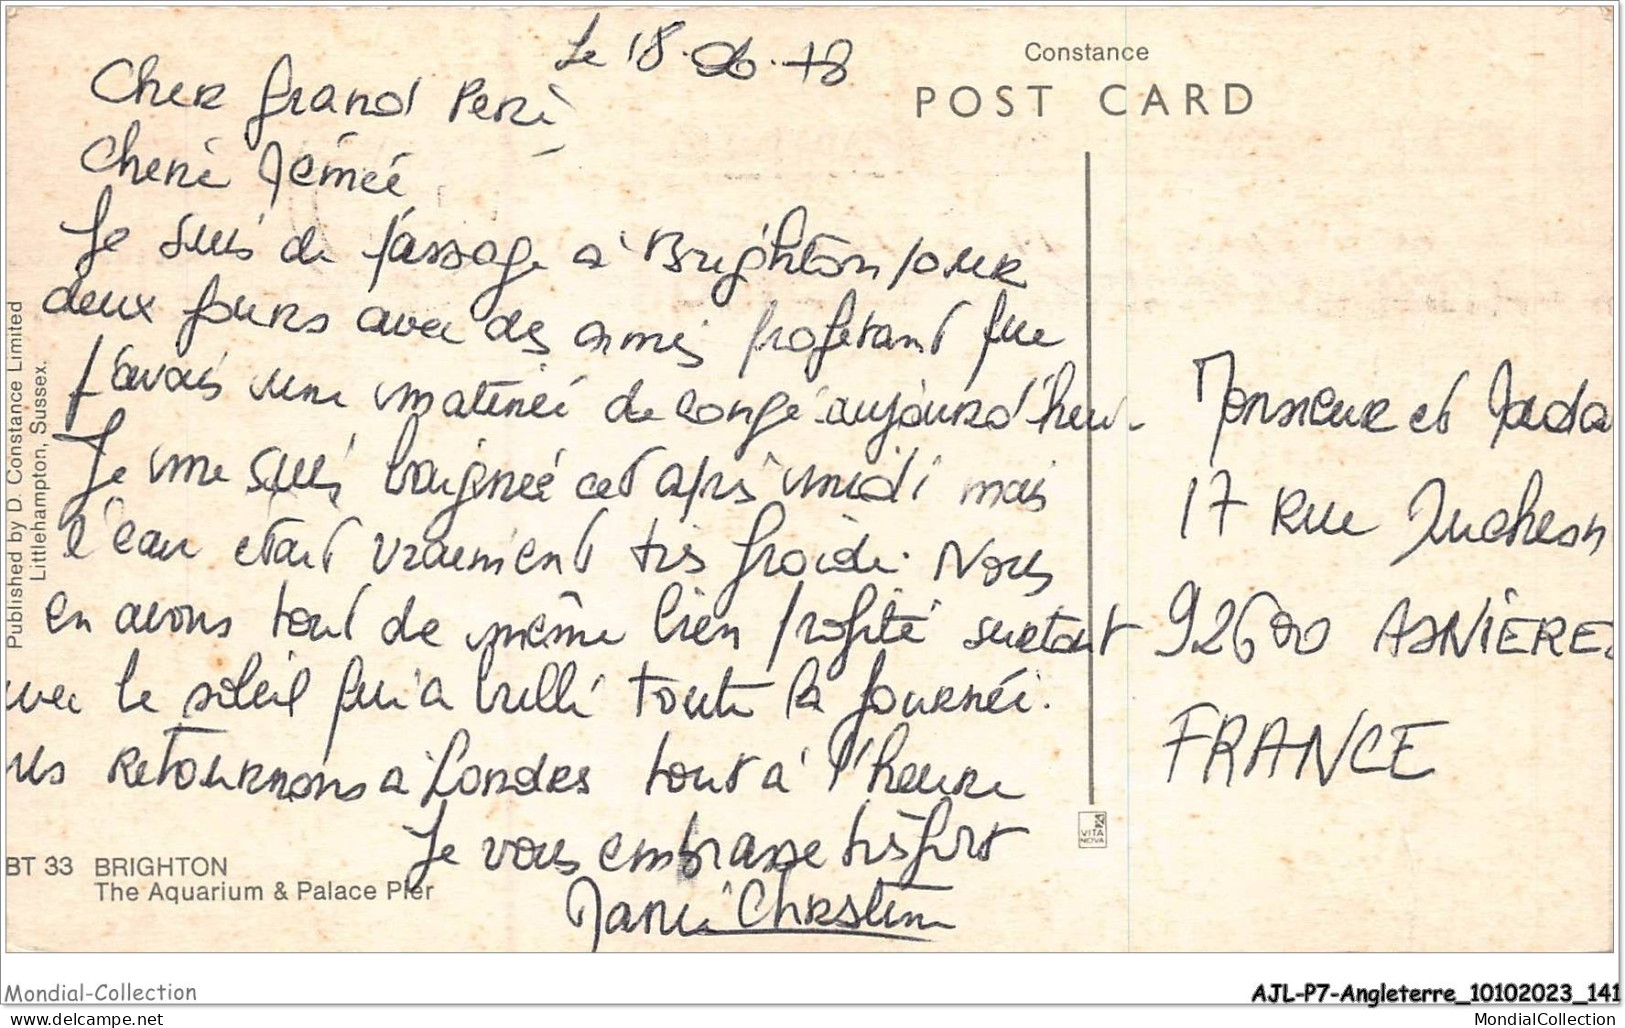 Le 18.06.78
Constance
POST CARD
Cher Grand Père
Chère Mémé
Je suis de passage à Brighton pour
deux jours avec des amis profitant que
j'avais une matinée de congé aujourd'hui.
Je me suis baignée cet après midi mais
l'eau était vraiment très froide. Nous
en avons tout de même bien profité surtout
avec le soleil qui a brillé toute la journée.
retournons à Londres tout à l'heure
Je vous embrasse très fort
Marie Christine
Monsieur et Mada
17 Rue Duchesn
92600 ASNIÈRES
FRANCE
Published by D. Constance Limited
Littlehampton, Sussex.
VITA
NOVA
BT 33 BRIGHTON
The Aquarium & Palace Pier
Mondial-Collection
www.delcampe.net
AJL-P7-Angleterre_10102023_141
MondialCollection